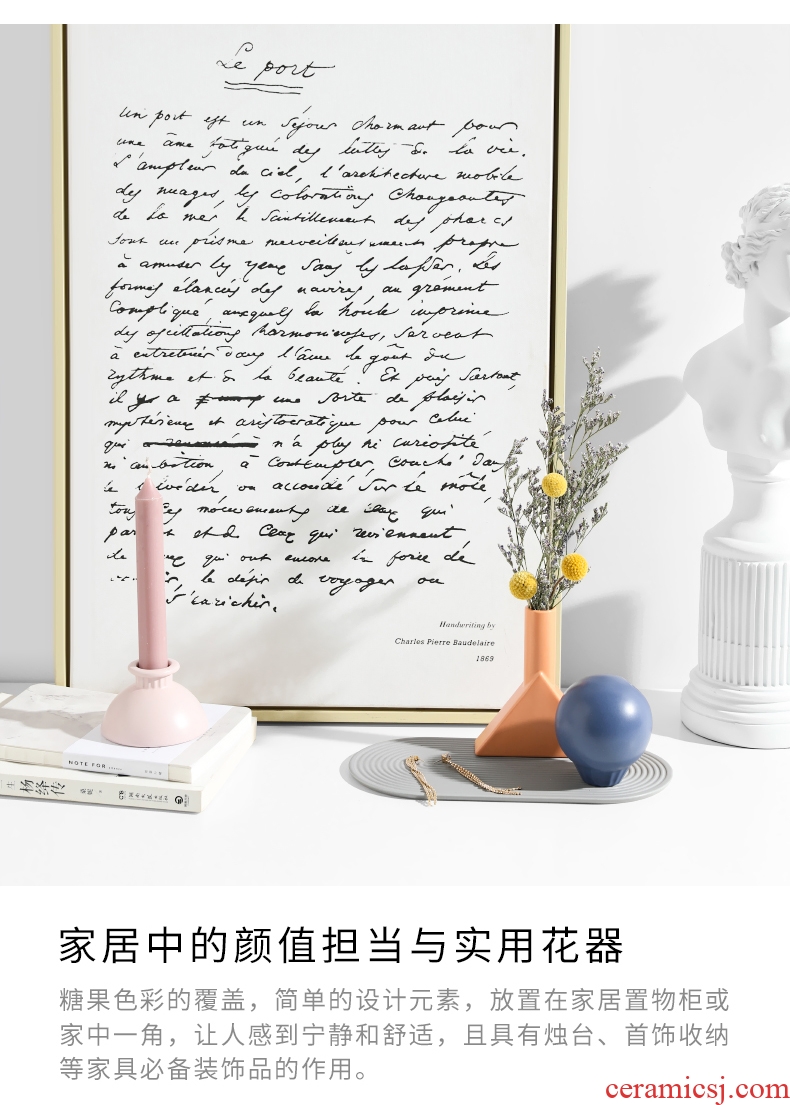 Le port
un port est un séjour charmant pour
une âme fatiguée des luttes de la vie.
L'ampleur du ciel, l'architecture mobile
des nuages, les colorations changeantes
de la mer, le scintillement des phares
sont un prisme merveilleusement propre
à amuser les yeux sans les lasser. Les
formes élancées des navires, au gréement
compliqué, auxquels la houle imprime
des oscillations harmonieuses, servent
à entretenir dans l'âme le goût du
rythme et de la beauté. Et puis surtout,
il y a une sorte de plaisir
mystérieux et aristocratique pour celui
qui n'a plus ni curiosité
ni ambition, à contempler, couché dans
le belvédère ou accoudé sur le môle,
tous ces mouvements de ceux qui
partent et de ceux qui reviennent,
de ceux qui ont encore la force de
le désir de voyager ou
s'enrichir.
Handwriting by
Charles Pierre Baudelaire
1869
NOTE FOR
杨绛传
家居中的颜值担当与实用花器
糖果色彩的覆盖，简单的设计元素，放置在家居置物柜或
家中一角，让人感到宁静和舒适，且具有烛台、首饰收纳
等家具必备装饰品的作用。
ceramicsj.com